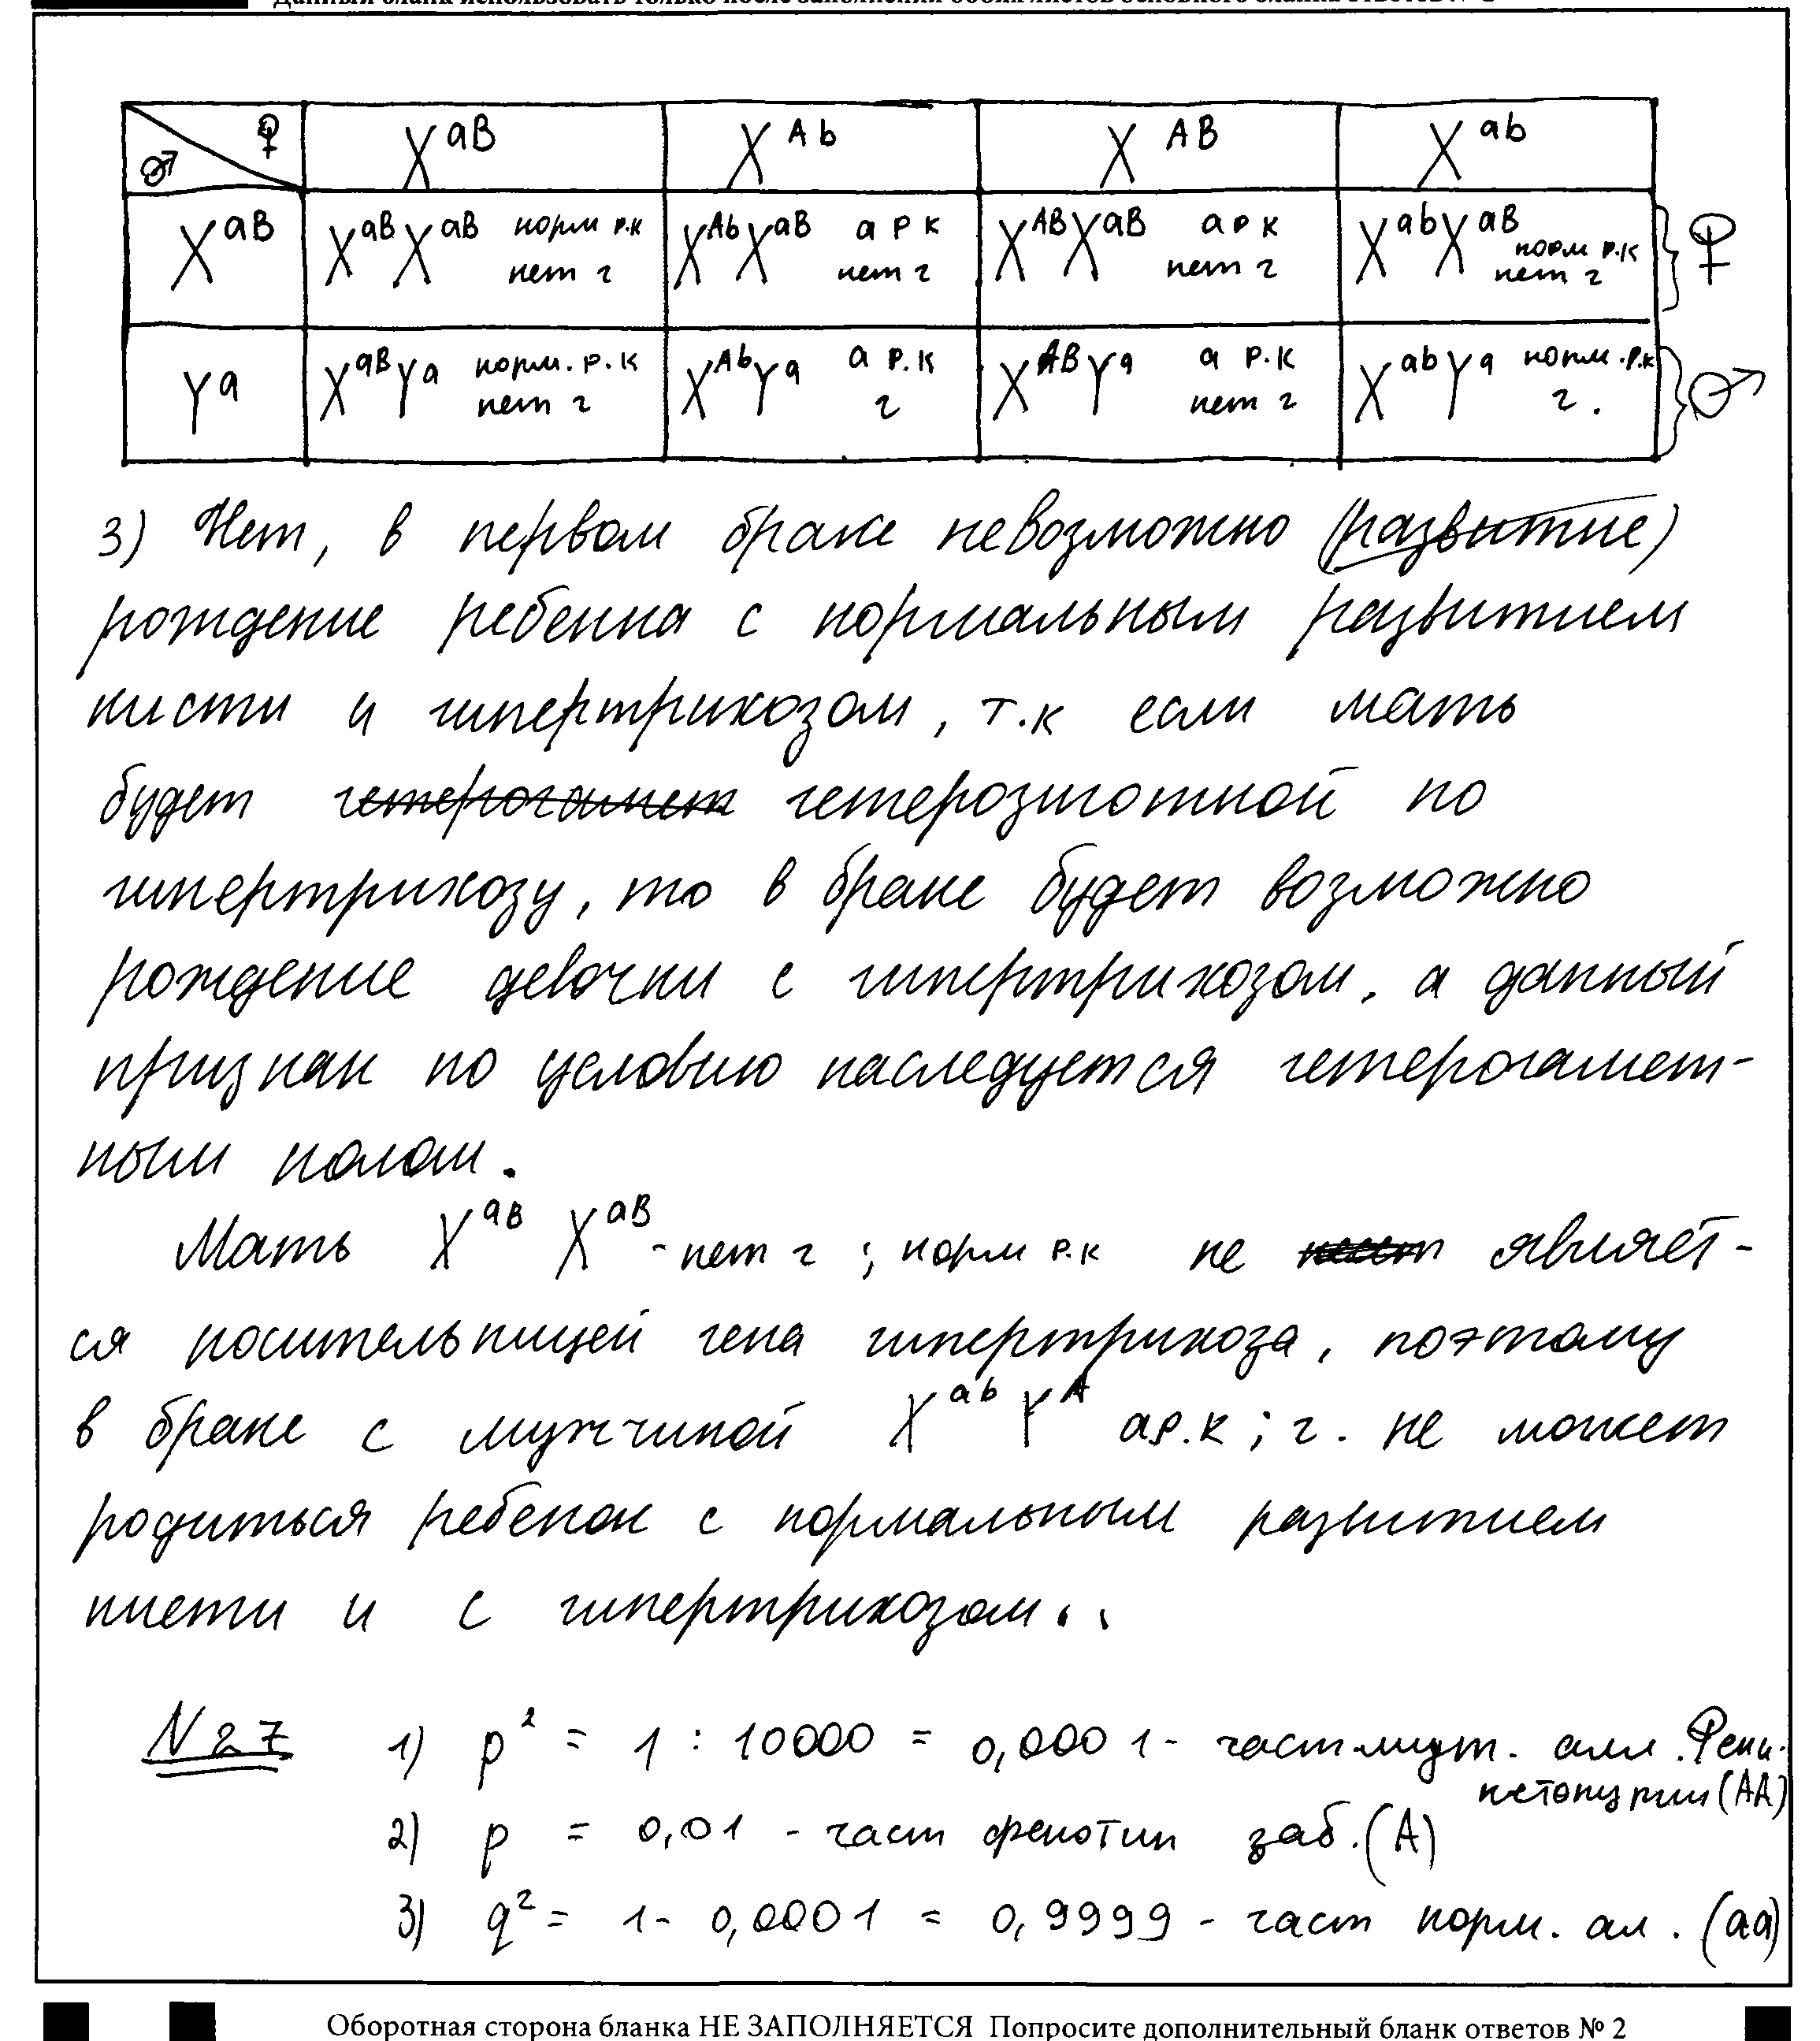 Данный бланк использовать только после заполнения обоих листов основного бланка ответов № 2
♂ ♀ X^aB X^Ab X^AB X^ab
X^aB X^aB X^aB норм р.к нет г X^Ab X^aB а р к нет г X^AB X^aB а р к нет г X^ab X^aB норм р.к нет г ♀
Y^a X^aB Y^a норм. р.к нет г X^Ab Y^a а р.к г X^AB Y^a а р.к нет г X^ab Y^a норм.р.к г. ♂
3) Нет, в первом браке невозможно (развитие)
рождение ребенка с нормальным развитием
кисти и гипертрихозом, т.к если мать
будет гетерогамет гетерозиготной по
гипертрихозу, то в браке будет возможно
рождение девочки с гипертрихозом, а данный
признак по условию наследуется гетерогамет-
ным полом.
Мать X^aB X^aB - нет г ; норм р.к не являет-
ся носительницей гена гипертрихоза, поэтому
в браке с мужчиной X^ab Y^A ар.к ; г. не может
родиться ребенок с нормальным развитием
кисти и с гипертрихозом.
N27 1) p² = 1 : 10000 = 0,0001 - част мут. алл. Фени-
кетонурии (AA)
2) p = 0,01 - част фенотип заб. (A)
3) q² = 1 - 0,0001 = 0,9999 - част норм. ал. (aa)
Оборотная сторона бланка НЕ ЗАПОЛНЯЕТСЯ Попросите дополнительный бланк ответов № 2